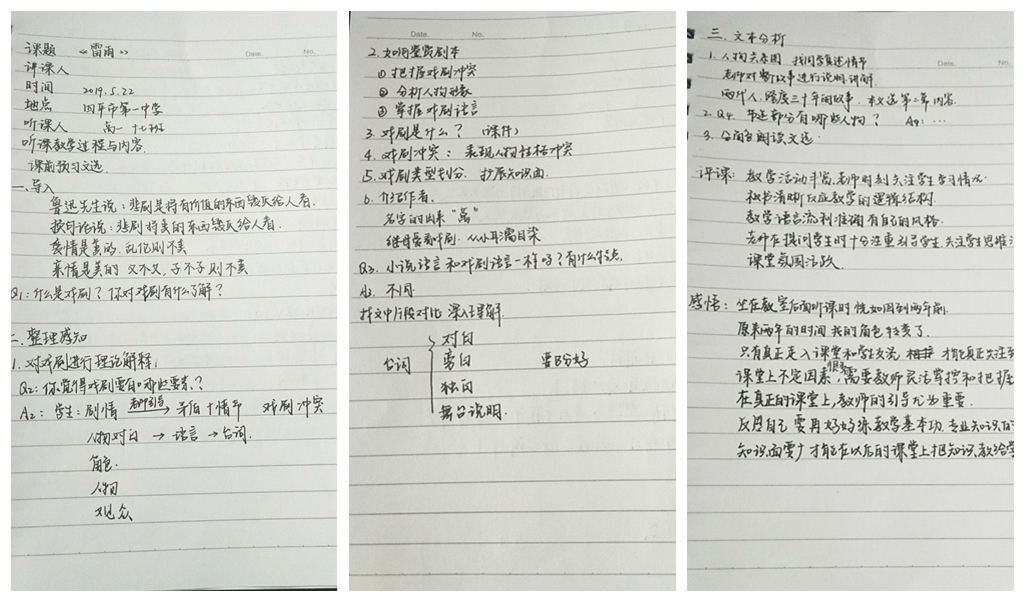 课题 《雷雨》
Date. No.
评课人
时间 2019.5.22
地点 四平市第一中学
听课人 高一十七班
听课教学过程与内容.
课前预习文选.
一.导入
鲁迅先生说:悲剧是将有价值的东西毁灭给人看.
换句话说:悲剧将美的东西毁灭给人看.
爱情是美的.乱伦则不美
亲情是美的 父不父,子不子则不美
Q1:什么是戏剧?你对戏剧有什么了解?
二.整理感知
1.对戏剧进行理论解释;
Q2:你觉得戏剧要有哪些要素?
A2:学生:剧情 老师引导→ 矛盾+情节 戏剧冲突
人物对白 → 语言 → 台词.
角色.
人物
观众
Date. No.
2.如何鉴赏剧本
①把握戏剧冲突
②分析人物形象
③掌握戏剧语言
3.戏剧是什么?(课件)
4.戏剧冲突:表现人物性格冲突
5.戏剧类型划分. 扩展知识面.
6.介绍作者.
名字的由来"萬"
继母爱看戏剧.从小耳濡目染
Q3.小说语言和戏剧语言一样吗?有什么特点.
A3.不同
找文中片段对比 深入理解.
台词
对白
旁白
独白
舞台说明.
要区分好
三.文本分析
Date. No.
1.人物关系图 找同学复述情节
老师对整个故事进行说明.讲解.
两代人.跨度三十年的故事.本文选第二幕内容.
2.Q4.节选部分有哪些人物? A4:…
3.分角色朗读文选.
评课:教学活动丰富.老师时刻关注学生学习情况.
板书清晰反应教学的逻辑结构.
教学语言流利准确有自己的风格.
老师在提问学生时十分注重引导学生.关注学生思维
课堂氛围活跃.
感悟:坐在教室后面听课时恍如回到两年前.
原来两年的时间我的角色转变了.
只有真正走入课堂和学生交流 才能真正关注到
课堂上不定因素很多,需要教师灵活掌控和把握
在真正的课堂上,教师的引导尤为重要.
反思自己要再好好练教学基本功.专业知识
知识面要广才能在以后的课堂上把知识教给学